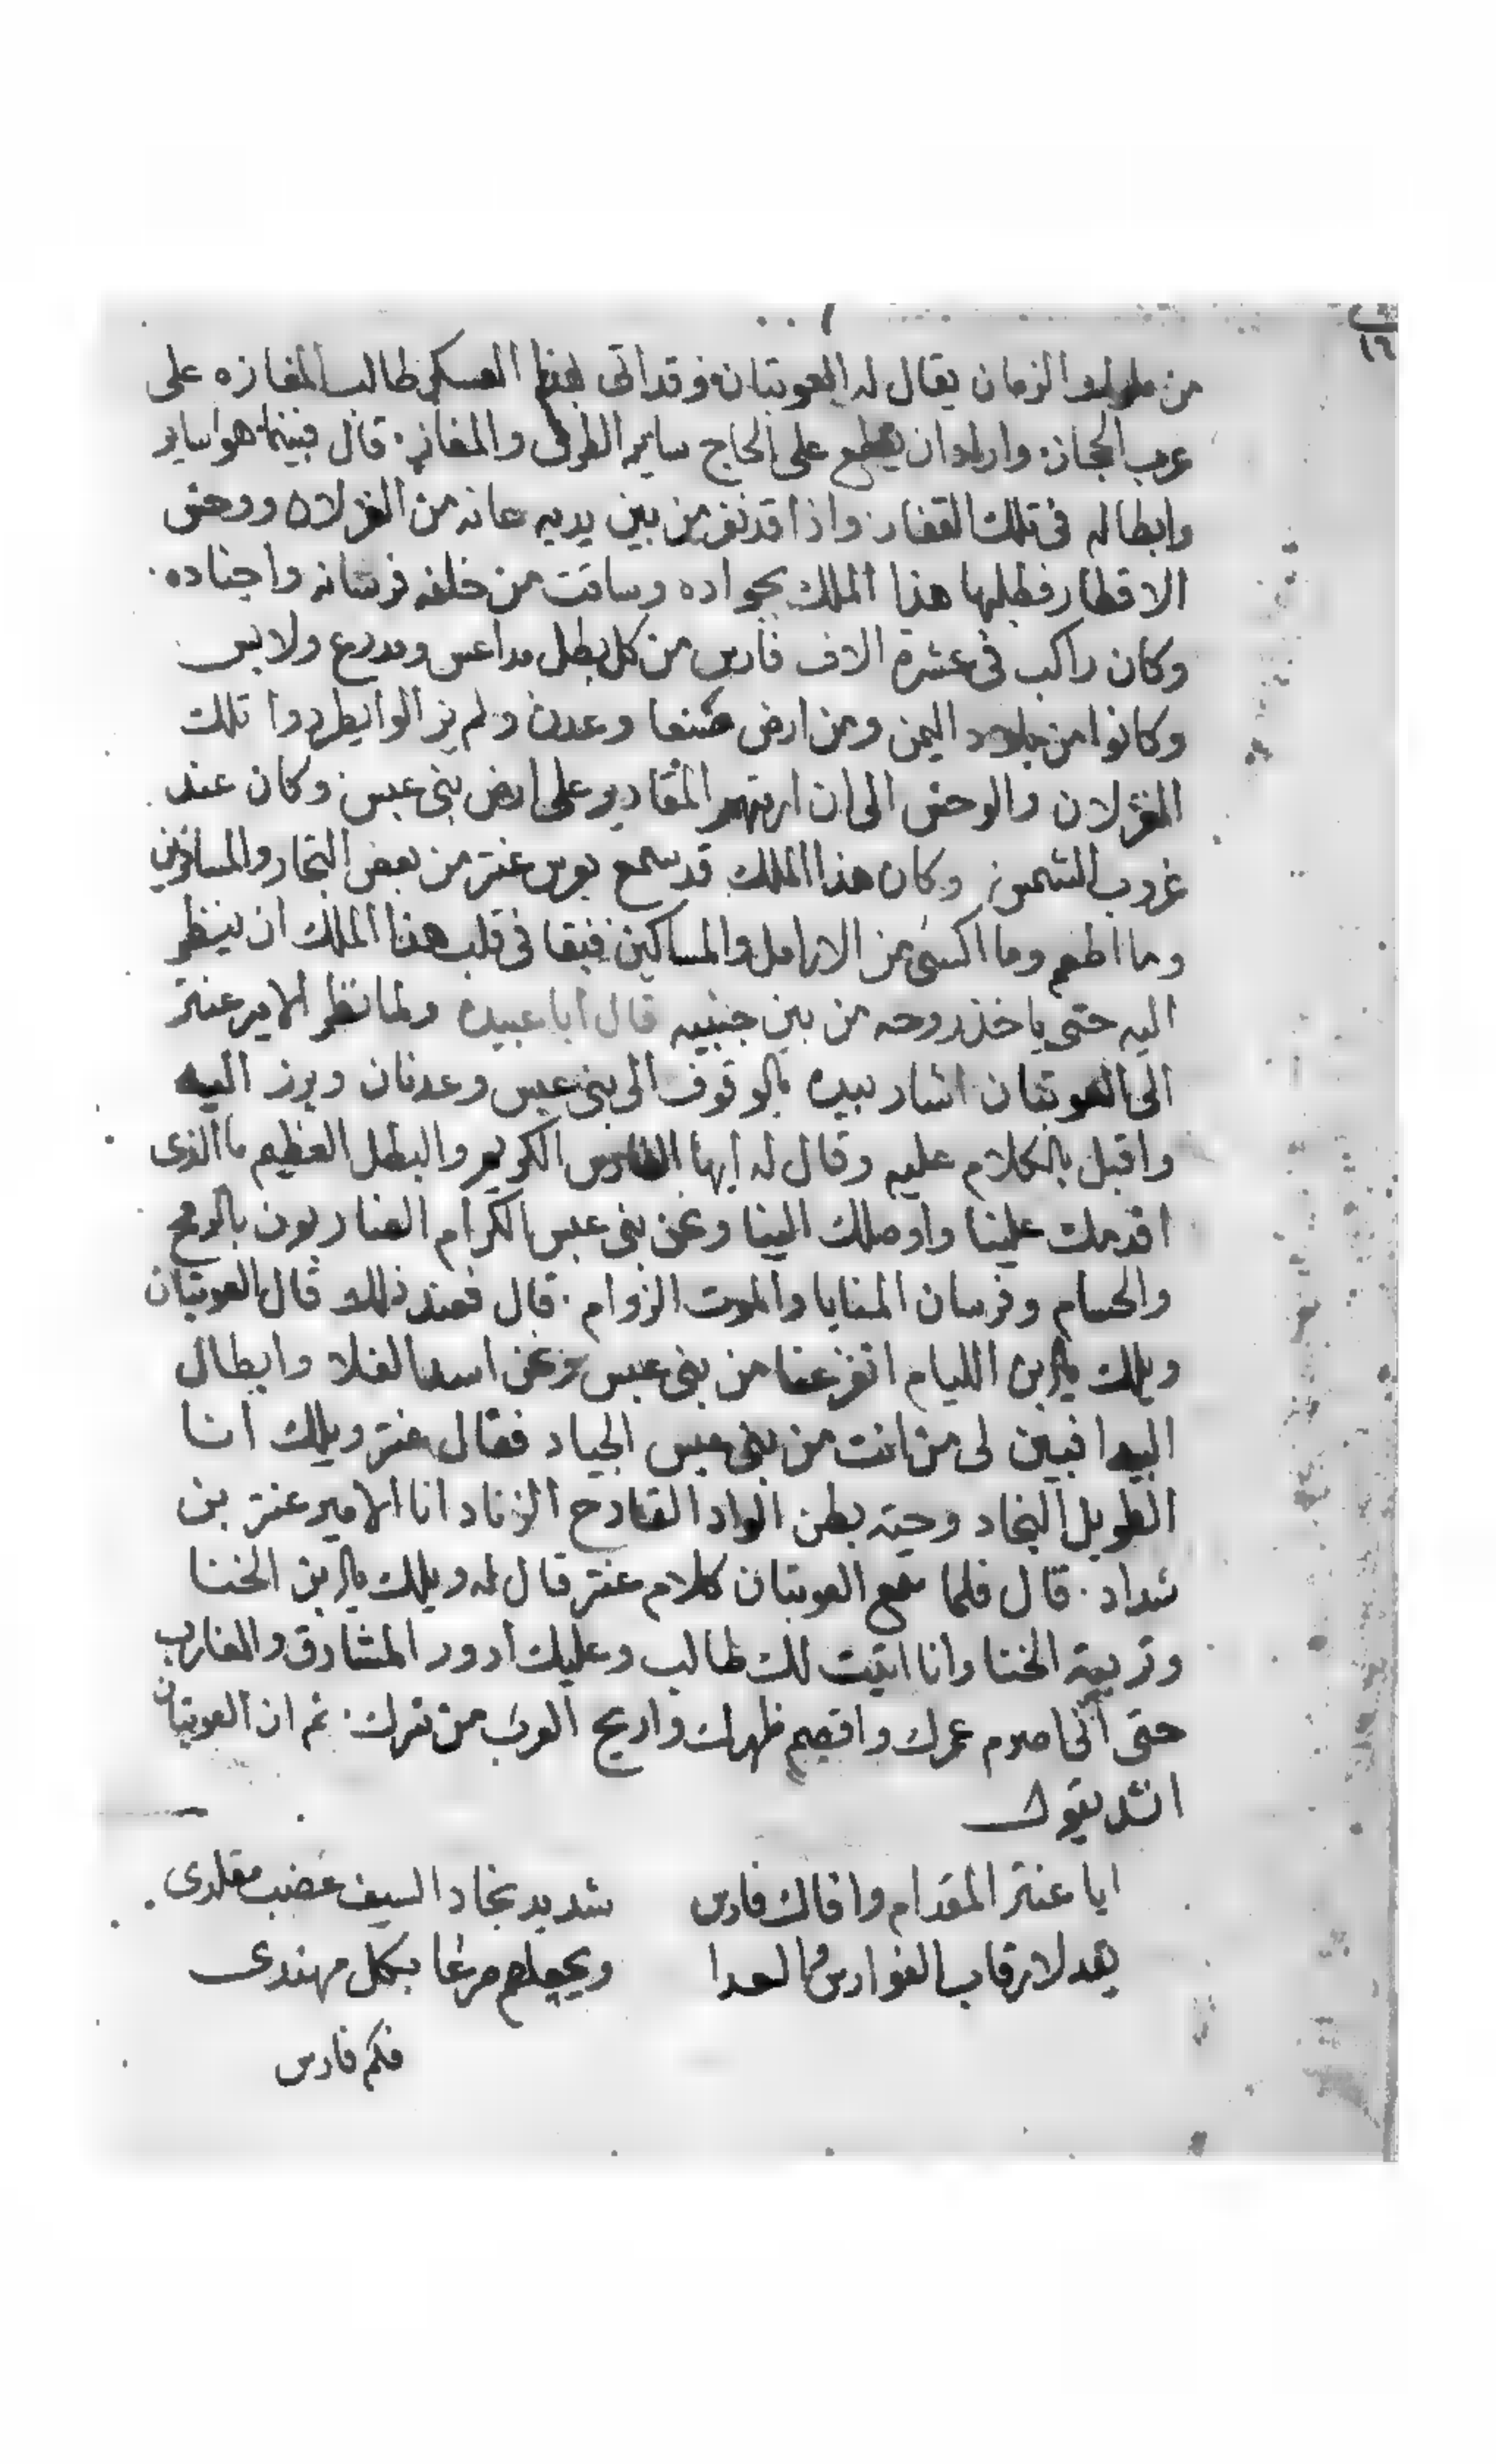 من ملوك الزمان يقال له العوبتان وقد اتى بهذا العسكر طالب المغازه على
عرب الحجاز. واراد ان يقطع على الحاج ساير الطرق والمغاز. قال فبينما هو ساير
وابطاله فى تلك القفار. واذا قد نفر من بين يديه عانه من الغزلان ووحش
الاقطار فطلبها هذا الملك بجواده وساقت من خلفه فرسانه واجناده.
وكان راكب فى عشرة الاف فارس من كل بطل مداعس ومدرع ولابس
وكانوا من بلاد اليمن ومن ارض صنعا وعدن ولم يزالوا يطردوا تلك
الغزلان والوحش الى ان ارمتهم المقادير على ارض بنى عبس وكان عند
غروب الشمس وكان هذا الملك قد سمع بعرس عنتر من بعض التجار والمسافرين
وما اطعم وما اكسى من الارامل والمساكين فبقا فى قلب هذا الملك ان ينظر
اليه حتى ياخذ روحه من بين جنبيه قال ابا عبيده ولما نظر الامير عنتر
الى العوبتان اشار بيده بالوقوف الى بنى عبس وعدنان وبرز اليه
واقبل بالكلام عليه وقال له ايها الفارس الكريم والبطل العظيم ما الذى
اقدمك علينا واوصلك الينا ونحن بنى عبس الكرام الضاربون بالرمح
والحسام وفرسان المنايا والموت الزوام. قال فعند ذلك قال العوبتان
ويلك يابن الليام اتفزعنا من بنى عبس ونحن اسد الفلا وابطال
البيدا فبين لى من انت من بنى عبس الجياد فقال عنتر ويلك انا
الطويل النجاد وحية بطن الواد القادح الزناد انا الامير عنتر بن
شداد. قال فلما سمع العوبتان كلام عنتر قال له ويلك يابن الخنا
وتربية الخنا وانا اتيت لك طالب وعليك ادور المشارق والمغارب
حتى اننى اصرم عمرك واقصم ظهرك واريح العرب من شرك. ثم ان العوبتان
انشد يقول
ايا عنتر المقدام وافاك فارس شديد نجاد السيف عضب مقلدى
يقد لارقاب الفوارس والعدا ويجعلهم مرعا بكل مهندى
فكم فارس